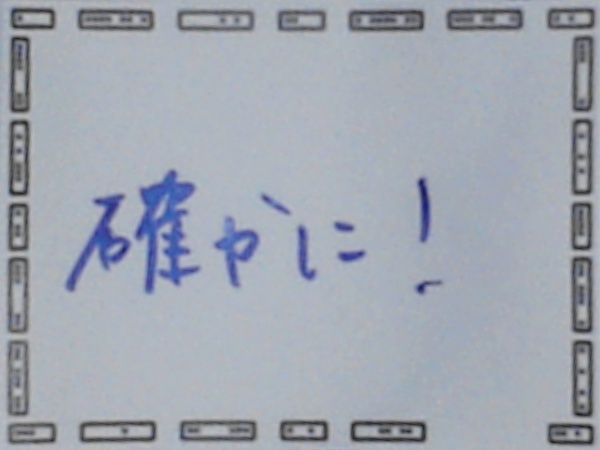 確かに!